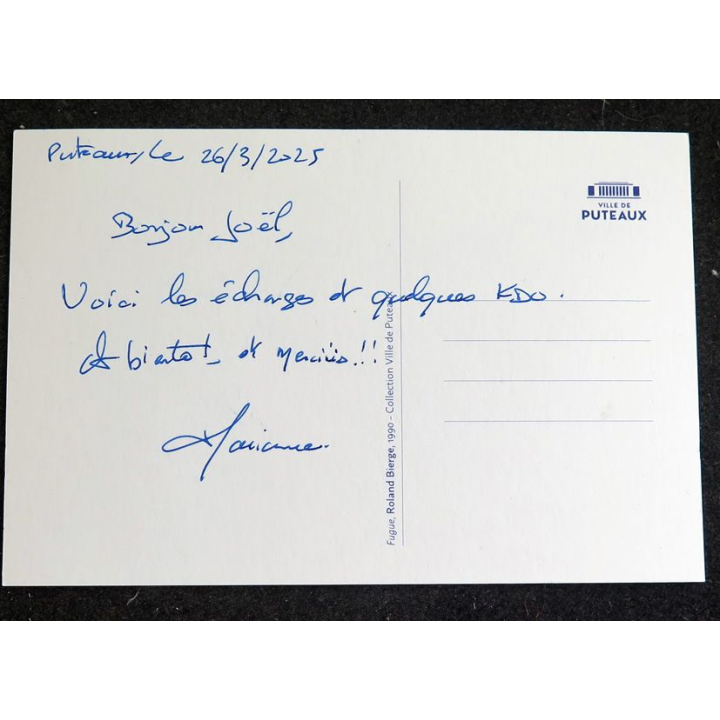 Puteaux, Le 26/3/2025
Bonjour Joël,
Voici les échanges et quelques KDO.
A bientôt, et Merciiis!!
Marianne.
VILLE DE
PUTEAUX
Fugue, Roland Bierge, 1990 - Collection Ville de Puteaux